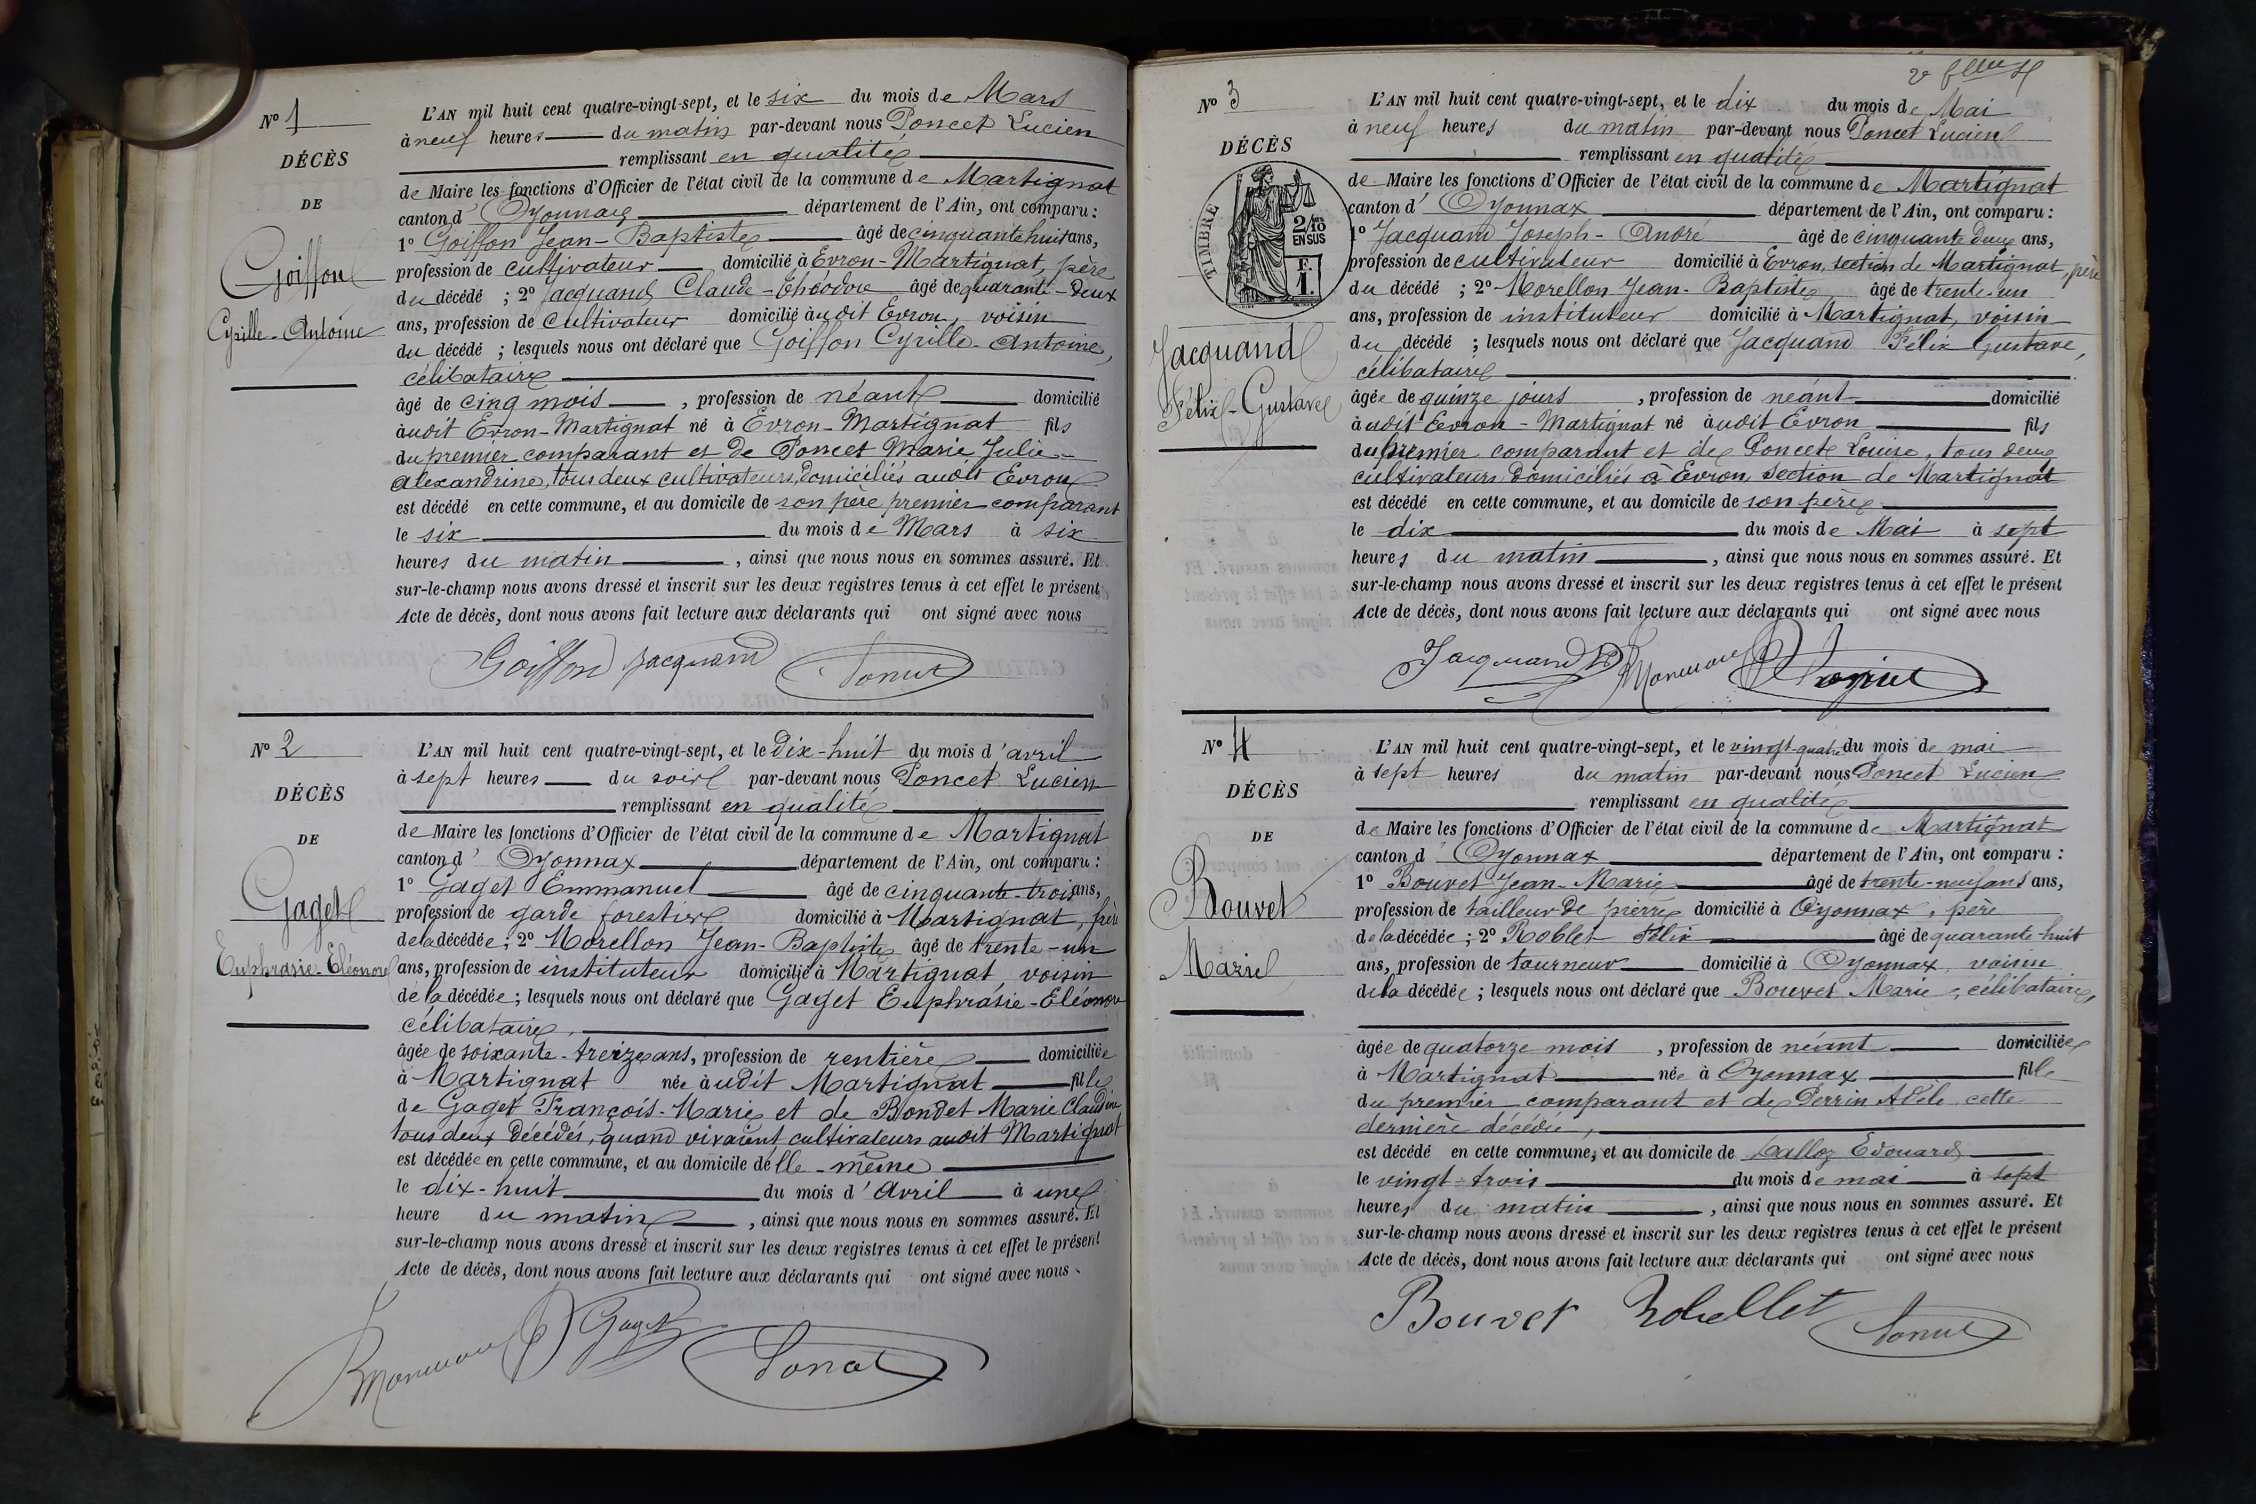 N° 1
DÉCÈS
DE
Goiffon
Cyrille-Antoine
L'AN mil huit cent quatre-vingt-sept, et le six du mois de Mars
à neuf heures du matin par-devant nous Poncet Lucien
remplissant en qualité
de Maire les fonctions d'Officier de l'état civil de la commune de Martignat
canton d'Oyonnax département de l'Ain, ont comparu :
1° Goiffon Jean-Baptiste âgé de cinquante huit ans,
profession de cultivateur domicilié à Evron-Martignat, père
du décédé ; 2° Jacquand Claude-Théodore âgé de quarante-deux
ans, profession de cultivateur domicilié audit Evron, voisin
du décédé ; lesquels nous ont déclaré que Goiffon Cyrille-Antoine,
célibataire
âgé de cinq mois , profession de néant domicilié
audit Evron-Martignat né à Evron-Martignat fils
du premier comparant et de Poncet Marie Julie-
Alexandrine, tous deux cultivateurs, domiciliés audit Evron
est décédé en cette commune, et au domicile de son père premier comparant
le six du mois de Mars à six
heures du matin , ainsi que nous nous en sommes assuré. Et
sur-le-champ nous avons dressé et inscrit sur les deux registres tenus à cet effet le présent
Acte de décès, dont nous avons fait lecture aux déclarants qui ont signé avec nous
Goiffon Jacquand Poncet
N° 2
DÉCÈS
DE
Gaget
Euphrasie-Eléonore
L'AN mil huit cent quatre-vingt-sept, et le Dix-huit du mois d'avril
à sept heures du soir par-devant nous Poncet Lucien
remplissant en qualité
de Maire les fonctions d'Officier de l'état civil de la commune de Martignat
canton d'Oyonnax département de l'Ain, ont comparu :
1° Gaget Emmanuel âgé de cinquante-trois ans,
profession de garde forestier domicilié à Martignat, père
de la décédée ; 2° Morellon Jean-Baptiste âgé de trente-un
ans, profession de instituteur domicilié à Martignat voisin
de la décédée ; lesquels nous ont déclaré que Gaget Euphrasie-Eléonore
célibataire,
âgée de soixante-treize ans, profession de rentière domiciliée
à Martignat née audit Martignat fille
de Gaget François-Marie et de Bondet Marie Claudine
tous deux décédés, quand vivaient cultivateurs audit Martignat
est décédée en cette commune, et au domicile d'elle-même
le dix-huit du mois d'Avril à une
heure du matin , ainsi que nous nous en sommes assuré. Et
sur-le-champ nous avons dressé et inscrit sur les deux registres tenus à cet effet le présent
Acte de décès, dont nous avons fait lecture aux déclarants qui ont signé avec nous
Gaget Poncet
2e
N° 3
DÉCÈS
TIMBRE
2/10 EN SUS
F. 1.
Jacquand
Félix-Gustave
L'AN mil huit cent quatre-vingt-sept, et le dix du mois de Mai
à neuf heures du matin par-devant nous Poncet Lucien
remplissant en qualité
de Maire les fonctions d'Officier de l'état civil de la commune de Martignat
canton d'Oyonnax département de l'Ain, ont comparu :
1° Jacquand Joseph-André âgé de cinquante deux ans,
profession de cultivateur domicilié à Evron, section de Martignat, père
du décédé ; 2° Morellon Jean-Baptiste âgé de trente-un
ans, profession de instituteur domicilié à Martignat, voisin
du décédé ; lesquels nous ont déclaré que Jacquand Félix Gustave,
célibataire
âgée de quinze jours , profession de néant domicilié
audit Evron-Martignat né audit Evron fils
du premier comparant et de Poncet Louise, tous deux
cultivateurs domiciliés à Evron section de Martignat
est décédé en cette commune, et au domicile de son père
le dix du mois de Mai à sept
heures du matin , ainsi que nous nous en sommes assuré. Et
sur-le-champ nous avons dressé et inscrit sur les deux registres tenus à cet effet le présent
Acte de décès, dont nous avons fait lecture aux déclarants qui ont signé avec nous
Jacquand Poncet
N° 4
DÉCÈS
DE
Bouvet
Marie
L'AN mil huit cent quatre-vingt-sept, et le vingt-quatre du mois de mai
à sept heures du matin par-devant nous Poncet Lucien
remplissant en qualité
de Maire les fonctions d'Officier de l'état civil de la commune de Martignat
canton d'Oyonnax département de l'Ain, ont comparu :
1° Bouvet Jean-Marie âgé de trente-neuf ans ans,
profession de tailleur de pierre domicilié à Oyonnax, père
de la décédée ; 2° Roblet Félix âgé de quarante-huit
ans, profession de tourneur domicilié à Oyonnax, voisin
de la décédée ; lesquels nous ont déclaré que Bouvet Marie, célibataire,
âgée de quatorze mois , profession de néant domiciliée
à Martignat née à Oyonnax fille
du premier comparant et de Perrin Adèle, cette
dernière décédée,
est décédé en cette commune, et au domicile de Dalloz Edouard
le vingt-trois du mois de mai à sept
heures du matin , ainsi que nous nous en sommes assuré. Et
sur-le-champ nous avons dressé et inscrit sur les deux registres tenus à cet effet le présent
Acte de décès, dont nous avons fait lecture aux déclarants qui ont signé avec nous
Bouvet Robellet Poncet